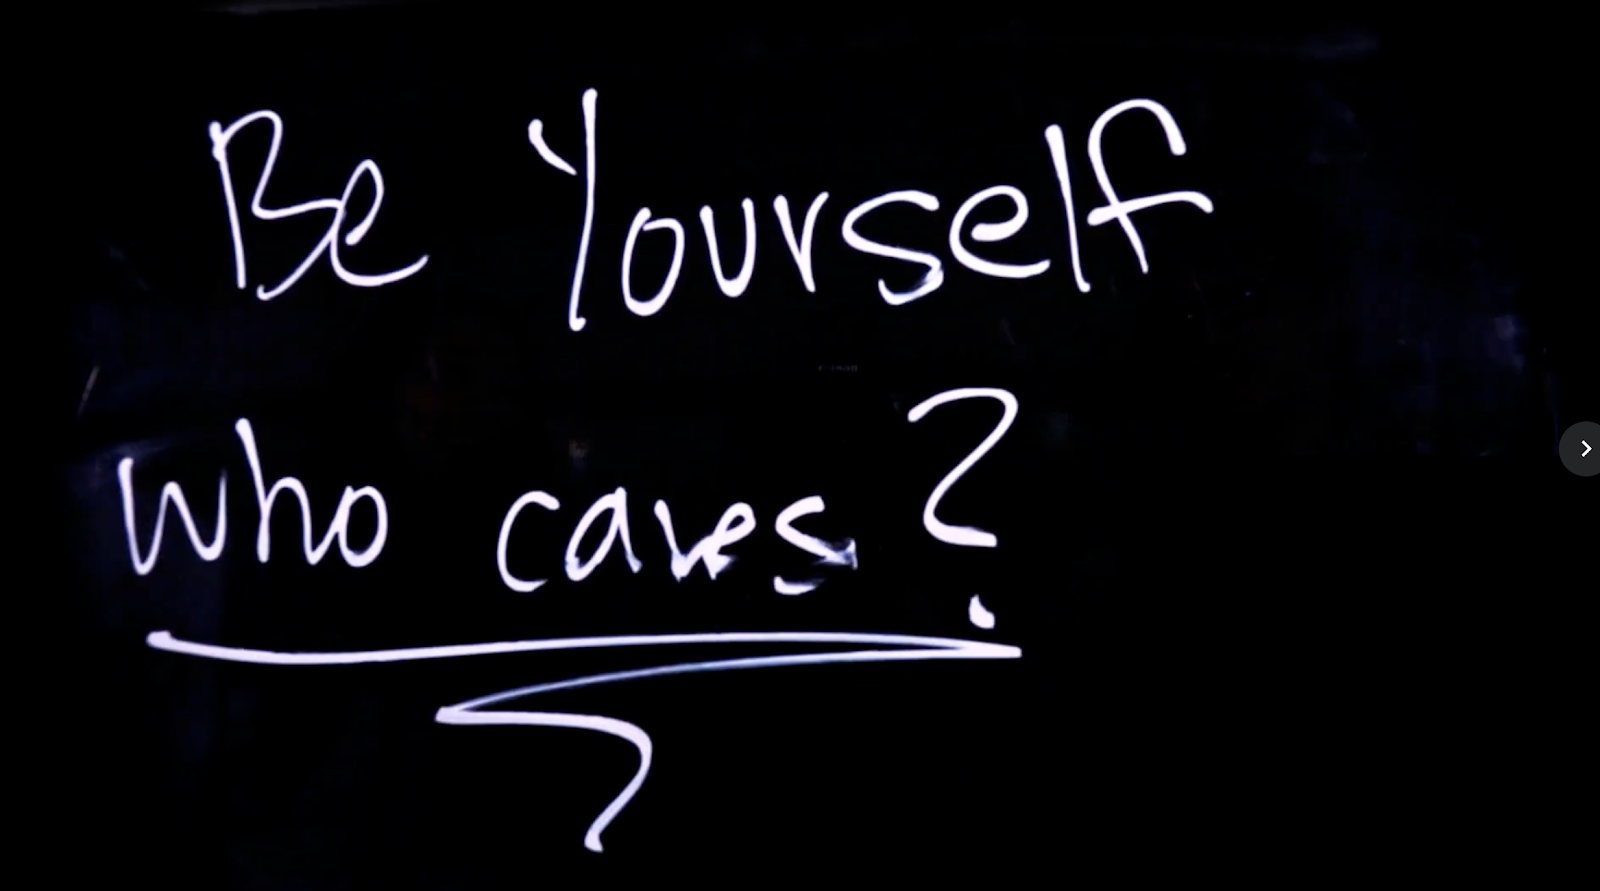 Be Yourself
who cares?